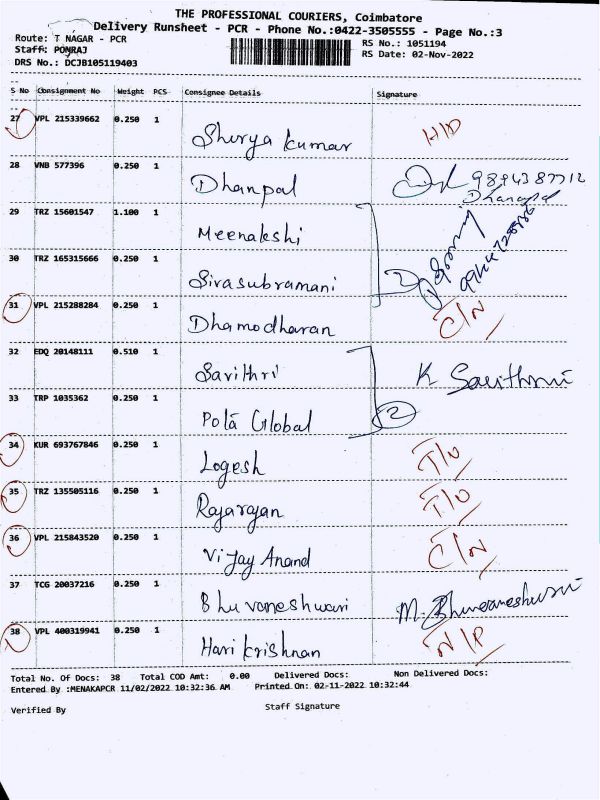 THE PROFESSIONAL COURIERS, Coimbatore
Delivery Runsheet - PCR - Phone No.:0422-3505555 - Page No.:3
Route: T NAGAR - PCR
RS No.: 1051194
Staff: PONRAJ
RS Date: 02-Nov-2022
DRS No.: DCJB105119403
S No Consignment No Weight PCS Consignee Details Signature
27 VPL 215339662 0.250 1 Shurya kumar H/D
28 VNB 577396 0.250 1 Dhanpal 9894387712
Dhanapal
29 TRZ 15601547 1.100 1 Meenakshi
30 TRZ 165315666 0.250 1 Sivasubramani 2
31 VPL 215288284 0.250 1 Dhamodharan C/N
32 EDQ 20148111 0.510 1 Savithri K Savithri
33 TRP 1035362 0.250 1 Pola Global 2
34 KUR 693767846 0.250 1 Logesh T/O
35 TRZ 135505116 0.250 1 Rajarajan T/O
36 VPL 215843520 0.250 1 Vijay Anand C/N
37 TCG 20037216 0.250 1 Bhuvaneshwari M. Bhuvaneshwari
38 VPL 400319941 0.250 1 Hari krishnan N/P
Total No. Of Docs: 38 Total COD Amt: 0.00 Delivered Docs: Non Delivered Docs:
Entered By :MENAKAPCR 11/02/2022 10:32:36 AM Printed On: 02-11-2022 10:32:44
Verified By Staff Signature